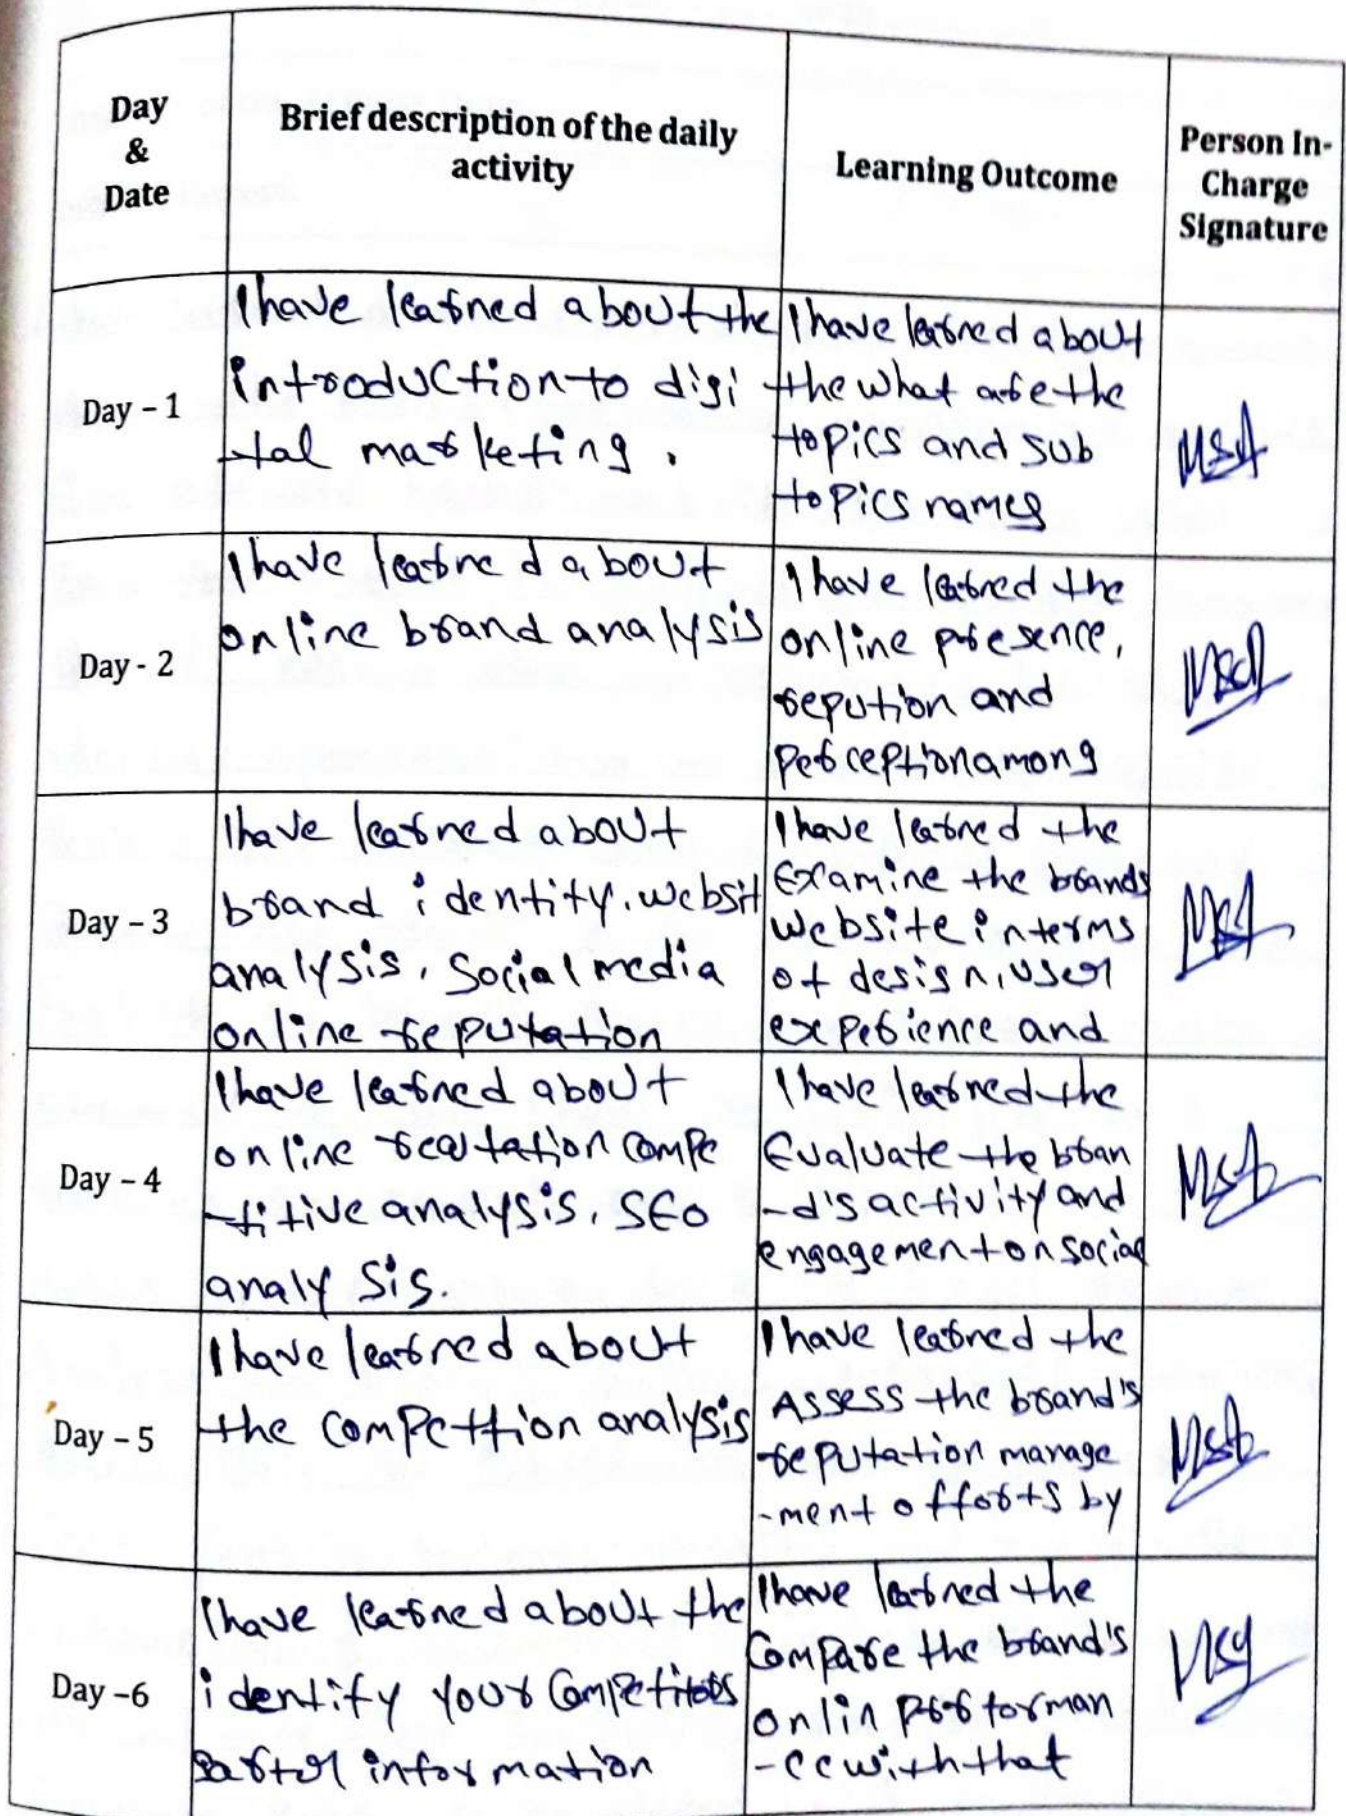 Day
&
Date
Brief description of the daily
activity
Learning Outcome
Person In-
Charge
Signature
Day - 1
I have learned about the
introduction to digi
tal marketing.
I have learned about
the what are the
topics and sub
topics names
Day - 2
I have learned about
online brand analysis
I have learned the
online presence,
repution and
perception among
Day - 3
I have learned about
brand identity, websit
analysis, social media
online reputation
I have learned the
Examine the brands
website in terms
of design, user
experience and
Day - 4
I have learned about
online compe
titive analysis, SEO
analysis.
I have learned the
Evaluate the bran
-d's activity and
engagement on social
Day - 5
I have learned about
the compettion analysis
I have learned the
Assess the brand's
reputation manage
-ment offorts by
Day -6
I have learned about the
identify your Competitors
information
I have learned the
Compare the brand's
onlin performan
-ce with that